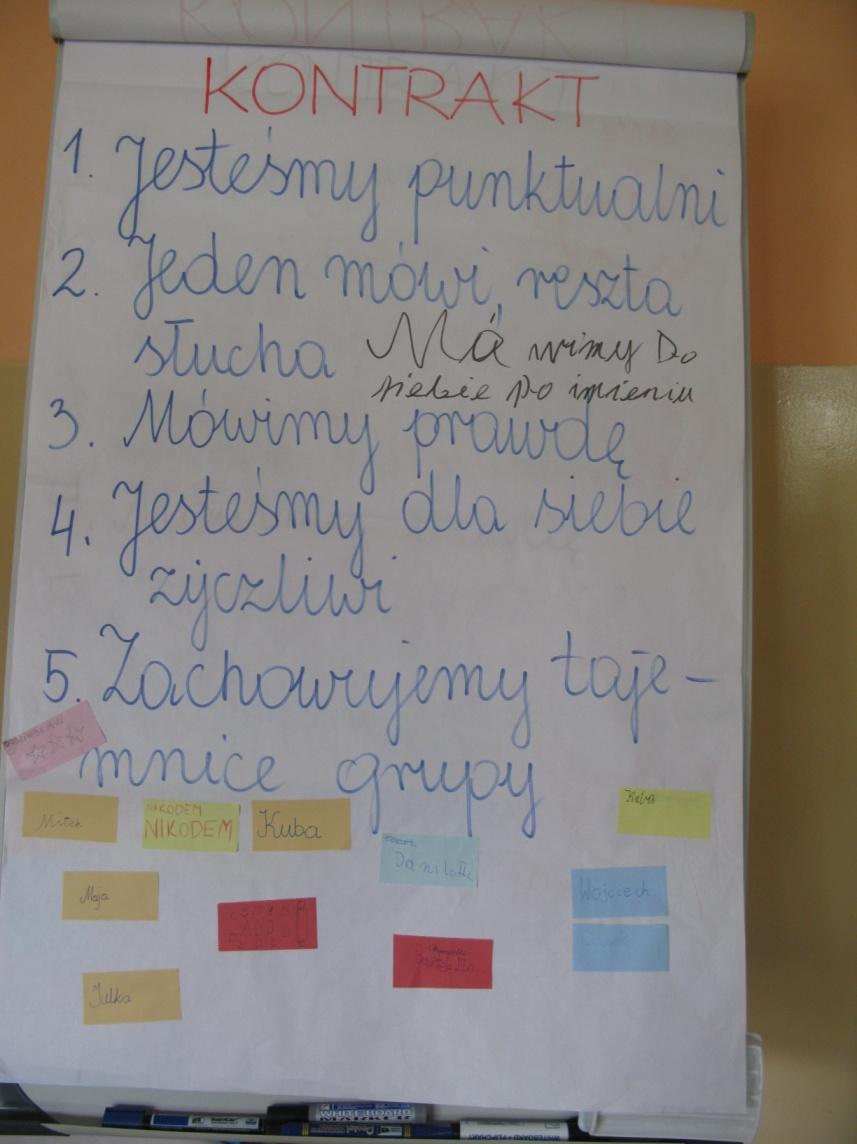 KONTRAKT
1. Jesteśmy punktualni
2. Jeden mówi, reszta
słucha
Má wimy Do
siebie po imieniu
3. Mówimy prawdę
4. Jesteśmy dla siebie
życzliwi
5. Zachowujemy taje-
mnice grupy
NIKODEM
NIKODEM
Kuba
Wojciech
Maja
Julka
WHITEBOARD